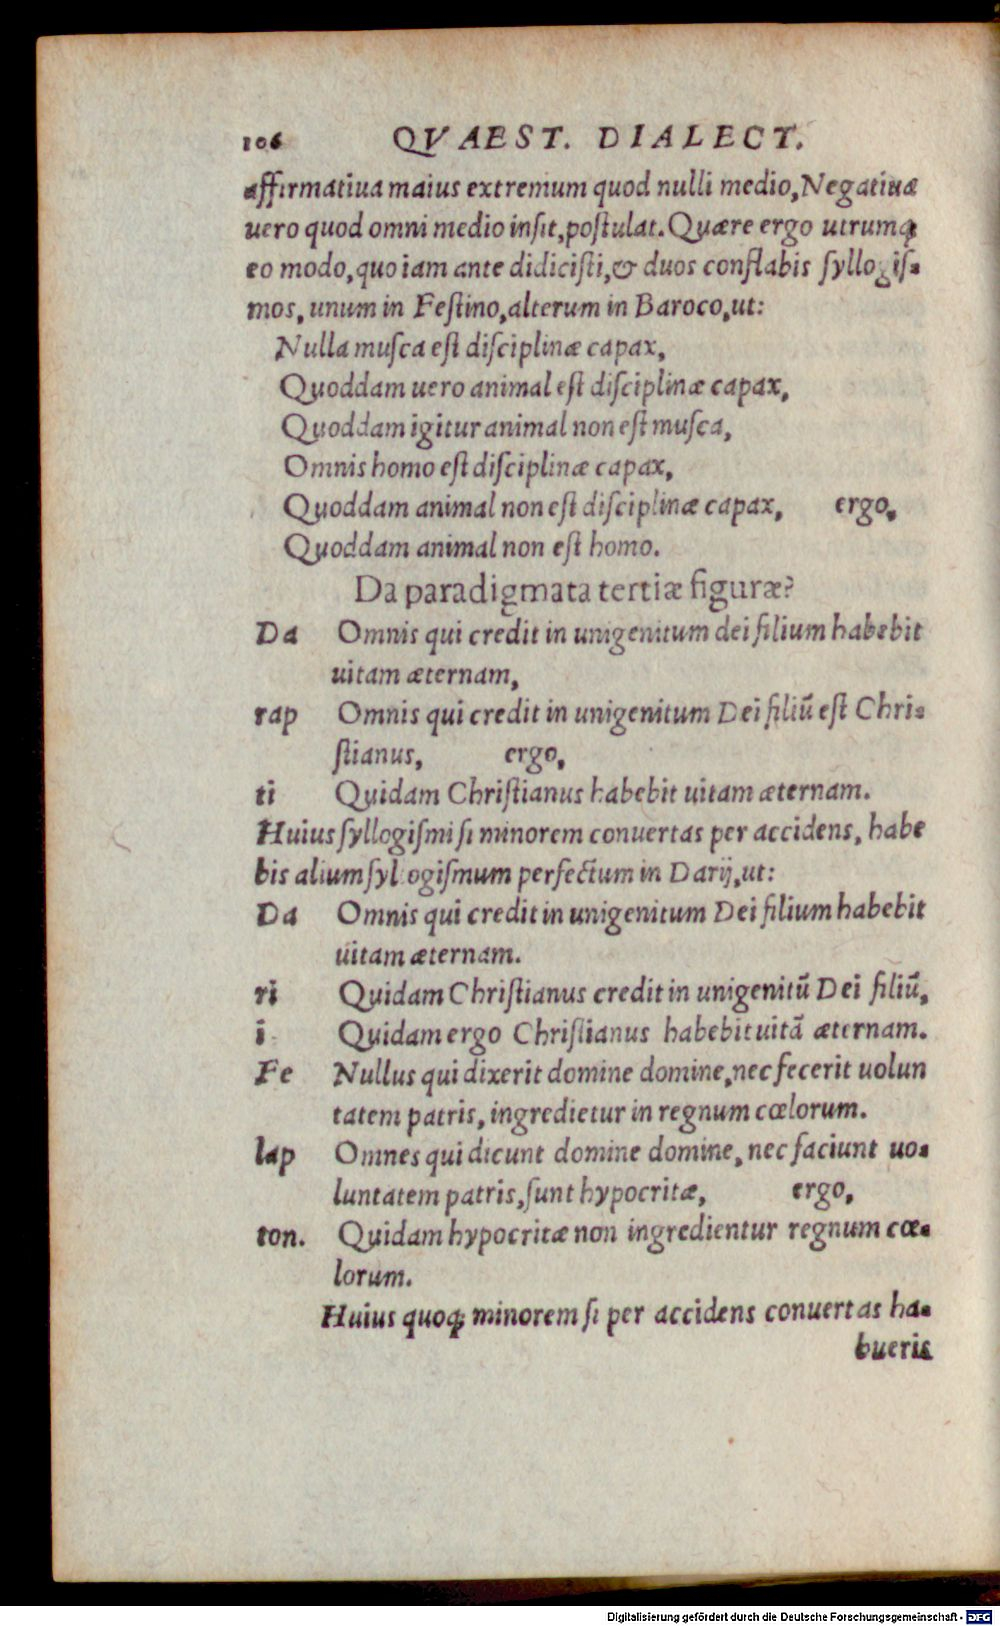 106 QVAEST. DIALECT.
affirmatiua maius extremum quod nulli medio, Negatiuæ
uero quod omni medio insit, postulat. Quære ergo utrumq;
eo modo, quo iam ante didicisti, & duos conflabis syllogis-
mos, unum in Festino, alterum in Baroco, ut:
Nulla musca est disciplinæ capax,
Quoddam uero animal est disciplinæ capax,
Quoddam igitur animal non est musca,
Omnis homo est disciplinæ capax,
Quoddam animal non est disciplinæ capax, ergo,
Quoddam animal non est homo.
Da paradigmata tertiæ figuræ?
Da Omnis qui credit in unigenitum dei filium habebit
uitam æternam,
rap Omnis qui credit in unigenitum Dei filiū est Chri-
stianus, ergo,
ti Quidam Christianus habebit uitam æternam.
Huius syllogismi si minorem conuertas per accidens, habe
bis alium syllogismum perfectum in Darij, ut:
Da Omnis qui credit in unigenitum Dei filium habebit
uitam æternam.
ri Quidam Christianus credit in unigenitū Dei filiū,
i Quidam ergo Christianus habebit uitā æternam.
Fe Nullus qui dixerit domine domine, nec fecerit uolun
tatem patris, ingredietur in regnum cœlorum.
lap Omnes qui dicunt domine domine, nec faciunt uo-
luntatem patris, sunt hypocritæ, ergo,
ton. Quidam hypocritæ non ingredientur regnum cœ-
lorum.
Huius quoq; minorem si per accidens conuertas ha-
bueris
Digitalisierung gefördert durch die Deutsche Forschungsgemeinschaft - DFG